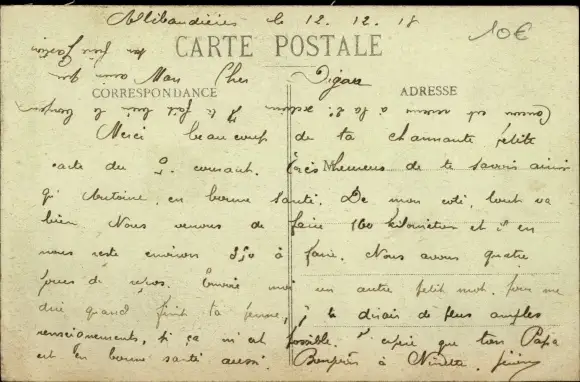 Allibaudières le 12. 12. 18
10€
CARTE POSTALE
Mon Cher
CORRESPONDANCE
ADRESSE
Merci beaucoup de ta charmante petite
carte du 2 courant. Très heureux de te savoir ainsi
qu'Antoine, en bonne santé. De mon coté, tout va
bien. Nous venons de faire 160 kilomètres et il en
nous reste environ à faire. Nous avons quatre
jours de repos. Envoie moi un autre petit mot, pour me
dire quand finit ta perme, je te dirais de plus amples
renseignements, si ça m'est possible. J'espère que ton Papa
est en bonne santé aussi. à Ninette.